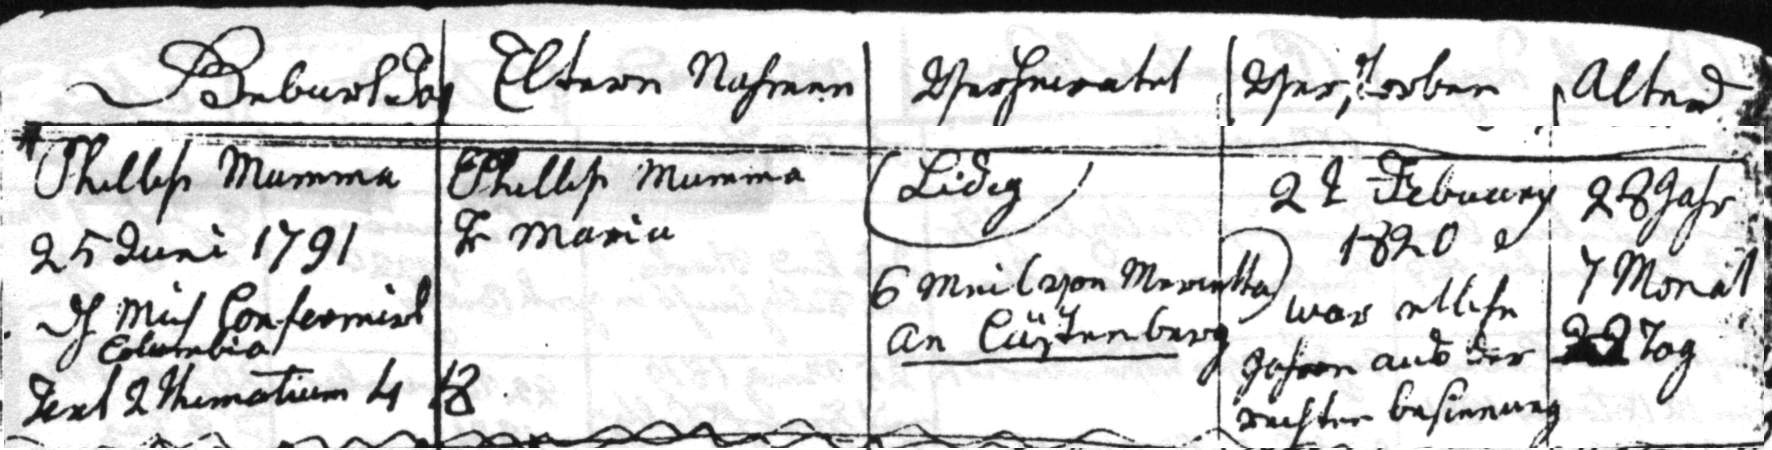 Geburts Tag
Eltern Nahmen
Verheiratet
Verstorben
Alter
Phillip Mumma
25 Juni 1791
Ist mich Confermirt
Columbia
Text 2 Thimotium 4 18
Phillip Mumma
Fr Maria
(Lidig)
6 Meil von Marietta
an
22 Febuary
1820
war etliche
Jahren aus der
rechter besinnung
28 Jahr
7 Monat
22 Tag